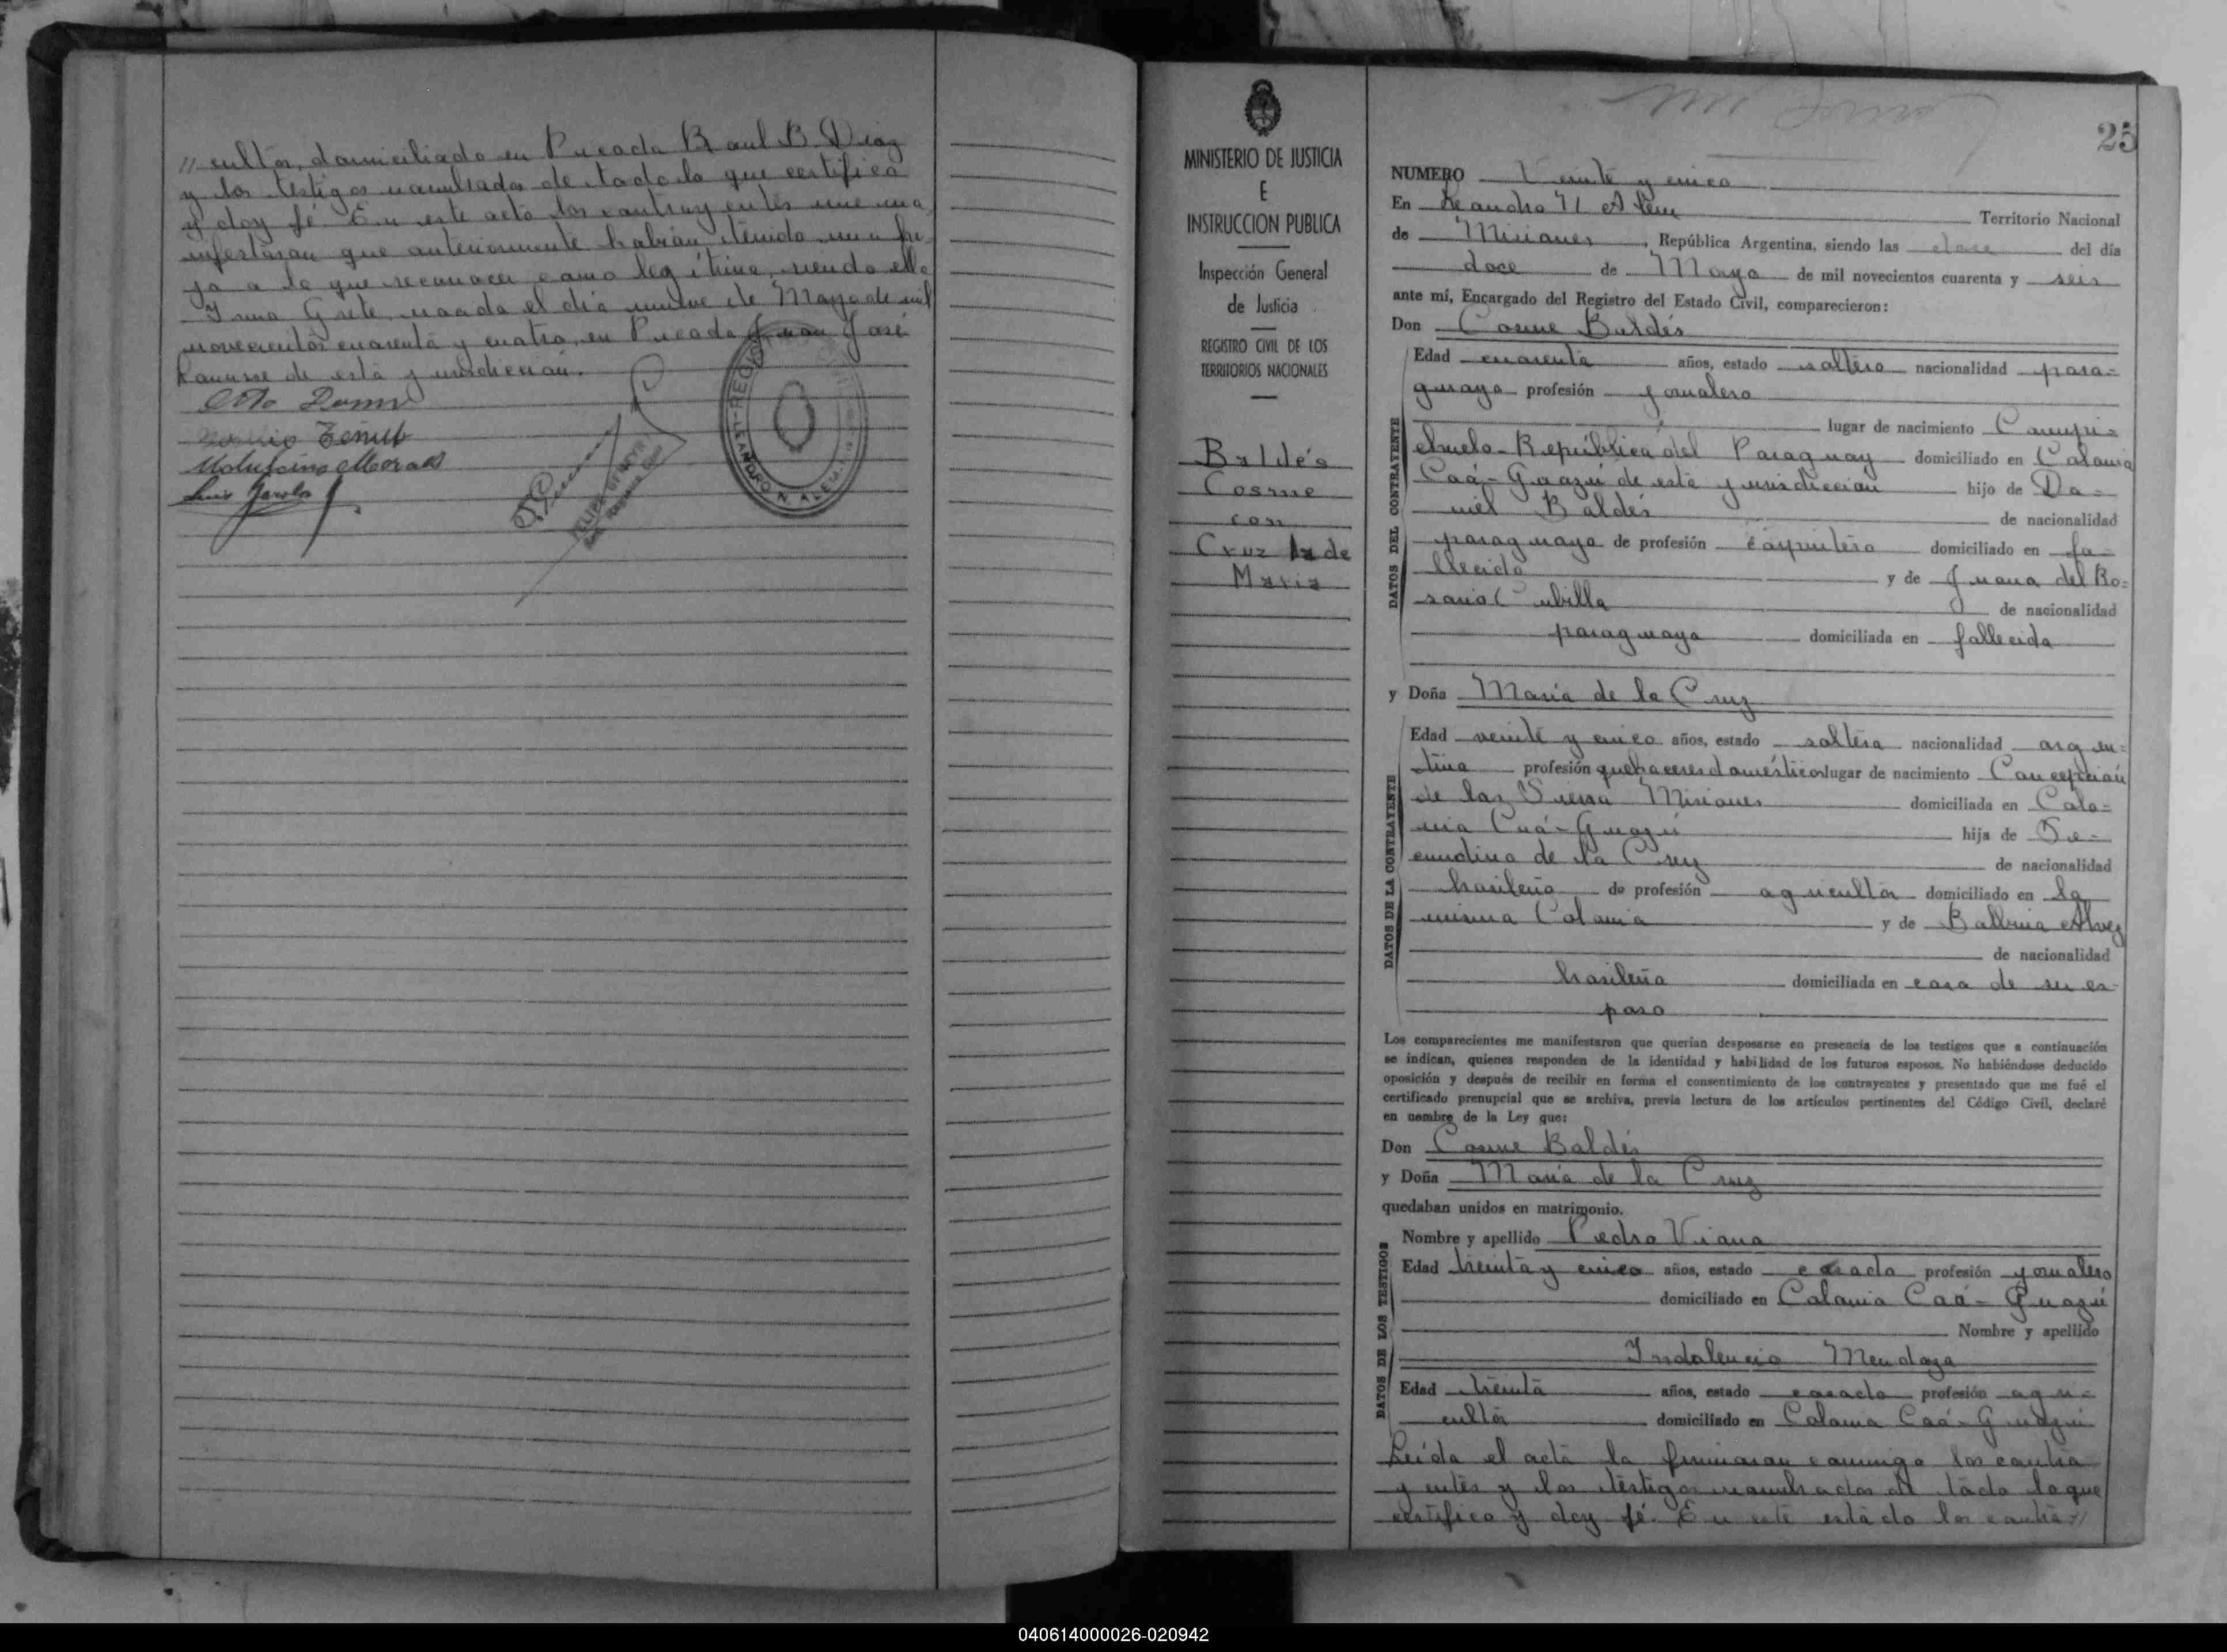 // cultor, domiciliado en Picada Raul B. Diaz
y los testigos nombrados de todo lo que certifico
y doy fé. En este acto los contrayentes me ma
nifestaron que anteriormente habían tenido una hi-
ja a la que reconocen como legítima, siendo ella
Irma Grete, nacida el día nueve de Mayo de mil
novecientos cuarenta y cuatro, en Picada Juan José
Lanusse de esta jurisdicción.
Otto
Moraes
Luis
LEANDRO N. ALEM
25
MINISTERIO DE JUSTICIA
E
INSTRUCCION PUBLICA
Inspección General
de Justicia
REGISTRO CIVIL DE LOS
TERRITORIOS NACIONALES
Baldés
Cosme
con
Cruz de
Maria
NUMERO Veinte y cinco
En Leandro N Alem Territorio Nacional
de Misiones, República Argentina, siendo las doce del día
doce de Mayo de mil novecientos cuarenta y seis
ante mí, Encargado del Registro del Estado Civil, comparecieron:
Don Cosme Baldés
DATOS DEL CONTRAYENTE
Edad cuarenta años, estado soltero nacionalidad para=
guaya profesión jornalero
lugar de nacimiento Campi=
chuelo-República del Paraguay domiciliado en Colonia
Caá-Guazú de esta jurisdicción hijo de Da=
niel Baldés de nacionalidad
paraguaya de profesión carpintero domiciliado en fa=
llecido y de Juana del Ro=
sario Cubilla de nacionalidad
paraguaya domiciliada en fallecida
y Doña María de la Cruz
DATOS DE LA CONTRAYENTE
Edad veinte y cinco años, estado soltera nacionalidad argen=
tina profesión quehaceres domésticos lugar de nacimiento Concepción
de la Sierra Misiones domiciliada en Colo=
nia Caá-Guazú hija de Se=
cundino de la Cruz de nacionalidad
brasileña de profesión agricultor domiciliado en la
misma Colonia y de Balbina Alvez
de nacionalidad
brasileña domiciliada en casa de su es-
poso
Los comparecientes me manifestaron que querían desposarse en presencia de los testigos que a continuación
se indican, quienes responden de la identidad y habilidad de los futuros esposos. No habiéndose deducido
oposición y después de recibir en forma el consentimiento de los contrayentes y presentado que me fué el
certificado prenupcial que se archiva, previa lectura de los artículos pertinentes del Código Civil, declaré
en nombre de la Ley que:
Don Cosme Baldés
y Doña María de la Cruz
quedaban unidos en matrimonio.
DATOS DE LOS TESTIGOS
Nombre y apellido Pedro Viana
Edad treinta y cinco años, estado casado profesión jornalero
domiciliado en Colonia Caá-Guazú
Nombre y apellido
Indalencio Mendoza
Edad treinta años, estado casado profesión agri=
cultor domiciliado en Colonia Caá-Guazú
Leída el acta la firmaron conmigo los contra
yentes y los testigos nombrados de todo lo que
certifico y doy fé. En este estado los contra//
040614000026-020942